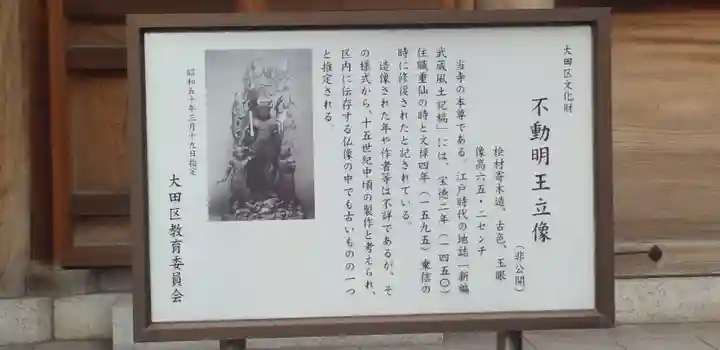 大田区文化財
不動明王立像
(非公開)
桧材寄木造、古色、玉眼
像高六五・二センチ
当寺の本尊である。江戸時代の地誌「新編
武蔵風土記稿」には、宝徳二年(一四五〇)
住職重仙の時と文禄四年(一五九五)乗信の
時に修復されたと記されている。
造像された年や作者等は不詳であるが、そ
の様式から、十五世紀中頃の製作と考えられ、
区内に伝存する仏像の中でも古いものの一つ
と推定される。
昭和五十年三月十九日指定
大田区教育委員会